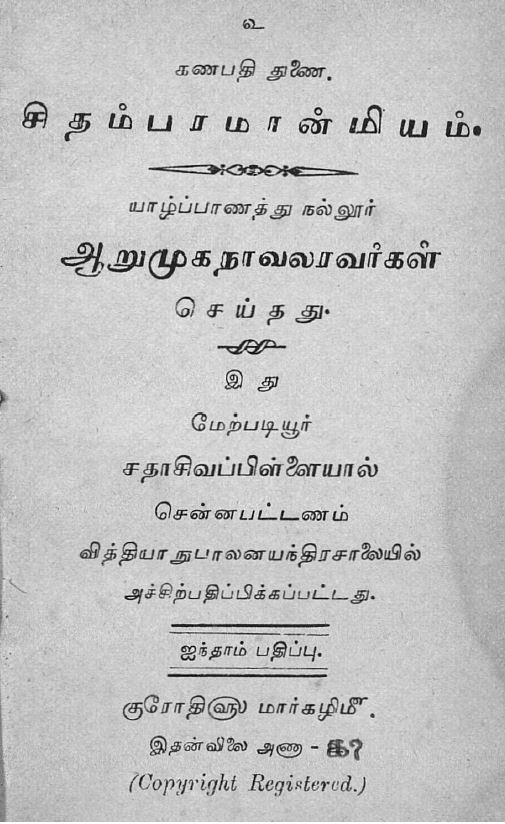 உ
கணபதி துணை.
சிதம்பரமான்மியம்.
யாழ்ப்பாணத்து நல்லூர்
ஆறுமுகநாவலரவர்கள்
செய்தது.
இது
மேற்படியூர்
சதாசிவப்பிள்ளையால்
சென்னபட்டணம்
வித்தியாநுபாலனயந்திரசாலையில்
அச்சிற்பதிப்பிக்கப்பட்டது.
ஐந்தாம் பதிப்பு.
குரோதி௵ மார்கழி௴.
இதன்விலை அணா -
(Copyright Registered.)